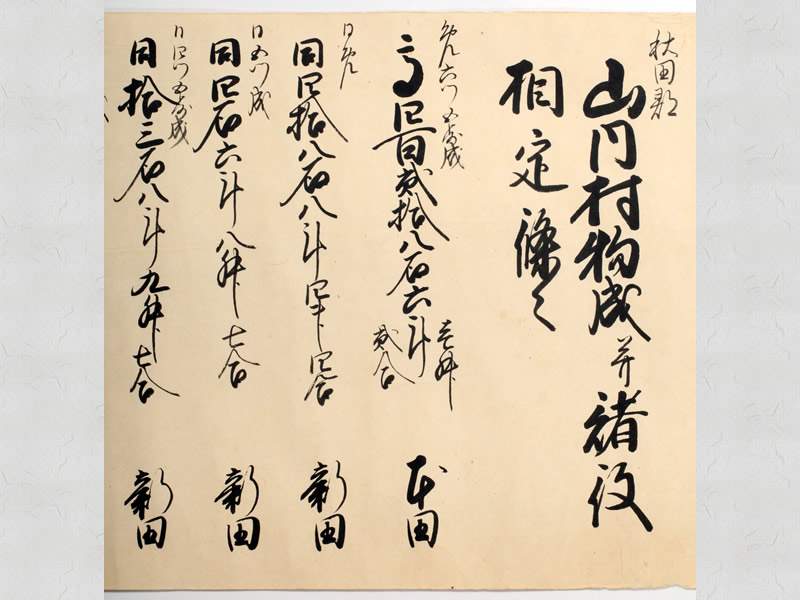 秋田郡
山門村物成并諸役
相定條々
免六ツ五歩成
高四百弐拾八石六斗壱升弐合 本田
同免
同四拾八石八斗四升四合 新田
同五ツ成
同四石六斗八升七合 新田
同四ツ五歩成
同拾三石八斗九升七合 新田